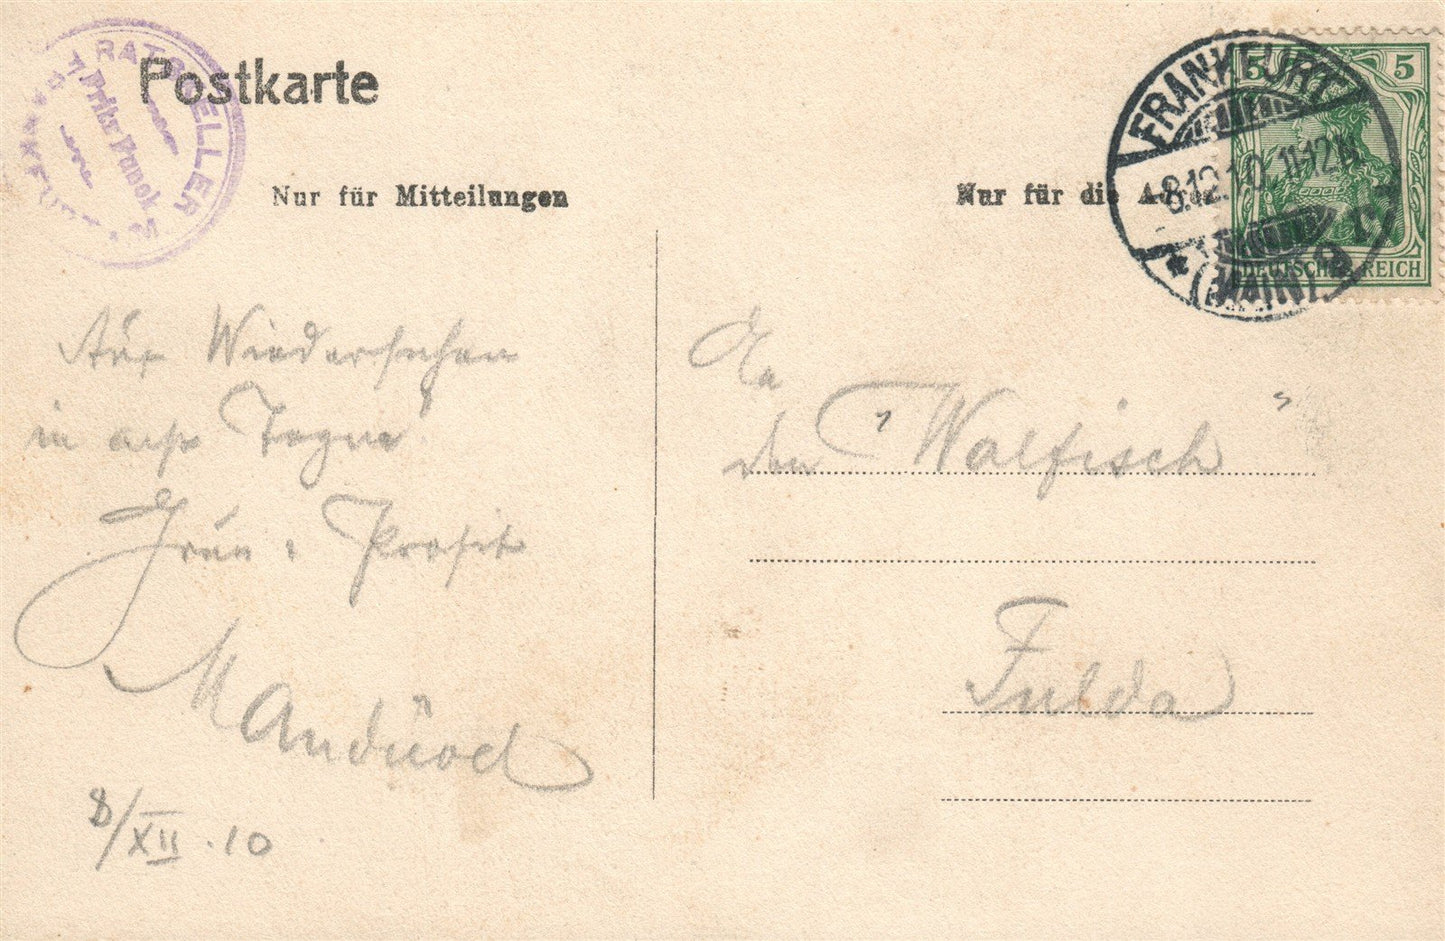 RATSKELLER
Fritz
Postkarte
Nur für Mitteilungen
Nur für die
FRANKFURT
8.12.10. 11-12
(MAIN) 9
5
5
DEUTSCHES REICH
Auf Wiedersehen
in Tagen
Prosit
8/XII.10
An
den "Walfisch"
Fulda